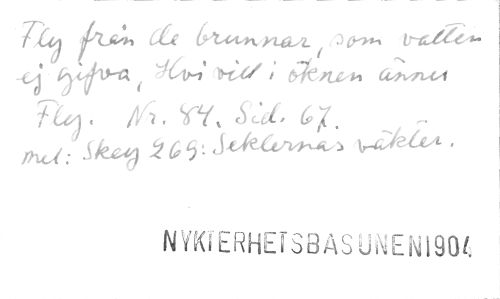 Fly från de brunnar, som vatten
ej gifva, Hvi vill i öknen ännu
Fly. Nr. 84. Sid. 67.
mel: Skey 269: Seklernas väkter.
NYKTERHETSBASUNEN1904